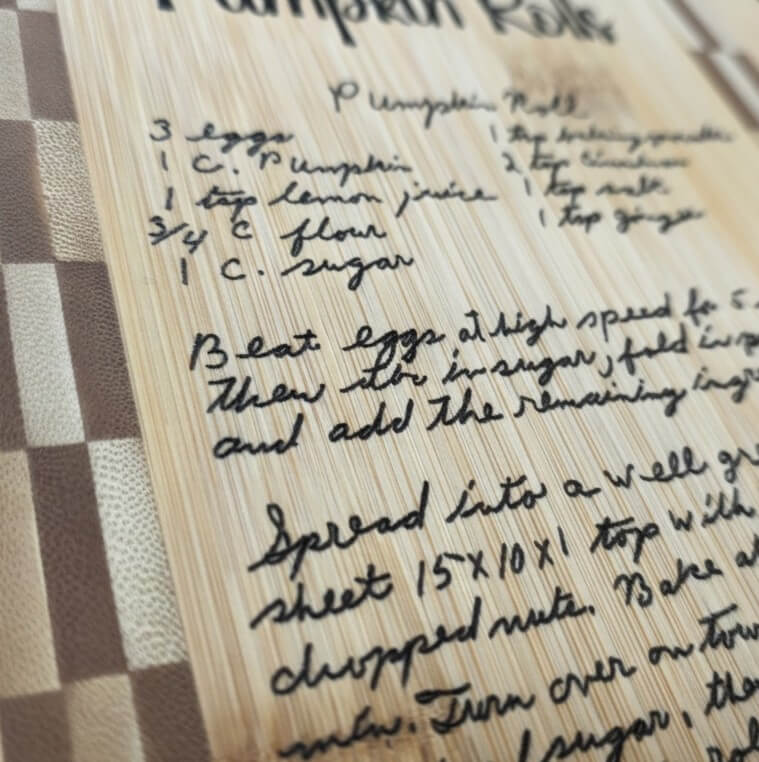 Pumpkin Rolls
Pumpkin Roll
3 eggs
1 C. Pumpkin
1 tsp lemon juice
3/4 C flour
1 C. sugar
1 tsp baking powder
2 tsp Cinnamon
1 tsp salt
1 tsp ginger
Beat eggs at high speed for 5
then stir in sugar, fold in
and add the remaining
Spread into a well
sheet 15x10x1 top with
chopped nuts. Bake
min. Turn over on
sugar,